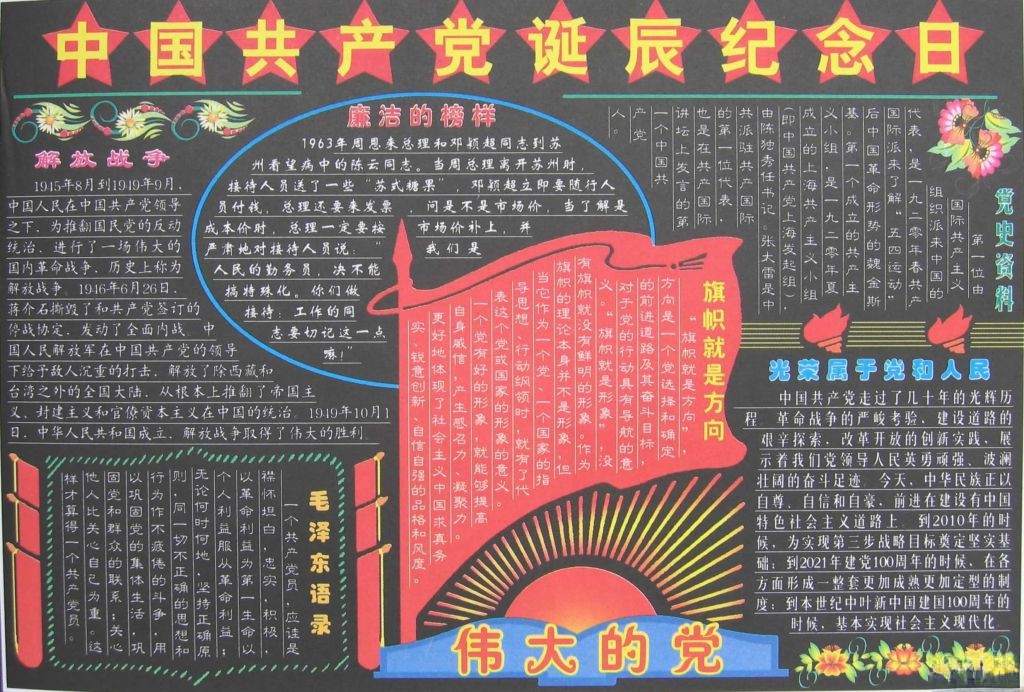 中国共产党诞辰纪念日
解放战争
1945年8月到1949年9月,
中国人民在中国共产党领导
之下、为推翻国民党的反动
统治、进行了一场伟大的
国内革命战争、历史上称为
解放战争。1946年6月26日、
蒋介石撕毁了和共产党签订的
停战协定、发动了全面内战、中
国人民解放军在中国共产党的领导
下给予敌人沉重的打击、解放了除西藏和
台湾之外的全国大陆、从根本上推翻了帝国主
义、封建主义和官僚资本主义在中国的统治。1949年10月1
日、中华人民共和国成立、解放战争取得了伟大的胜利。
廉洁的榜样
1963年周恩来总理和邓颖超同志到苏
州看望病中的陈云同志。当周总理离开苏州时,
接待人员送了一些“苏式糖果”,邓颖超立即要随行人
员付钱,总理还要来发票,问是不是市场价,当了解是
成本价时,总理一定要按市场价补上,并
严肃地对接待人员说:“我们是
人民的勤务员,决不能
搞特殊化。你们做
接待工作的同
志要切记这一点
嘛!”
党史资料
第一位由
国际共产主义
组织派来中国的
代表,是一九二零年春共产
国际派来了解“五四运动”
后中国革命形势的魏金斯
基。第一个成立的共产主
义小组,是一九二零年夏
成立的上海共产主义小组
(即中国共产党上海发起组)
由陈独秀任书记。张太雷是中
共派驻共产国际
的第一位代表,
也是在共产国际
讲坛上发言的第
一个中国共
产党
人。
旗帜就是方向
“旗帜就是方向”,
方向是一个党选择和确定
的前进道路及其奋斗目标,
对于党的行动具有导航的意
义。“旗帜就是形象”,没
有旗帜就没有鲜明的形象。作为
旗帜的理论本身并不是形象,但
当它作为一个党、一个国家的指
导思想、行动纲领时,就有了代
表这个党或国家的形象的意义。
一个党有好的形象,就能够提高
自身威信,产生感召力、凝聚力。
更好地体现了社会主义中国求真务
实、锐意创新、自信自强的品格和风度。
光荣属于党和人民
中国共产党走过了几十年的光辉历
程。革命战争的严峻考验,建设道路的
艰辛探索,改革开放的创新实践,展
示着我们党领导人民英勇顽强、波澜
壮阔的奋斗足迹。今天,中华民族正以
自尊、自信和自豪,前进在建设有中国
特色社会主义道路上。到2010年的时
候,为实现第三步战略目标奠定坚实基
础;到2021年建党100周年的时候,在各
方面形成一整套更加成熟更加定型的制
度;到本世纪中叶新中国建国100周年的
时候,基本实现社会主义现代化。
毛泽东语录
一个共产党员,应该是
襟怀坦白,忠实,积极,
以革命利益为第一生命,以
个人利益服从革命利益;
无论何时何地,坚持正确原
则,同一切不正确的思想和
行为作不疲倦的斗争,用
以巩固党的集体生活,巩
固党和群众的联系;关心
他人比关心自己为重。这
样才算得一个共产党员。
伟大的党